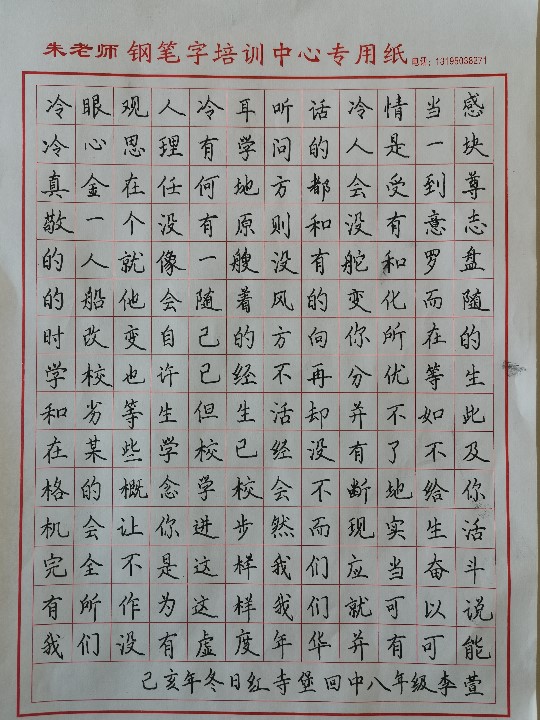 朱老师钢笔字培训中心专用纸 电话：13195038271
冷眼观人冷耳听话冷情当感
冷心思理有学问的人是一块
真金在任何地方都会受到尊
敬一个没有原则和没有意志
的人就像一艘没有舵和罗盘
的船他会随着风的变化而随
时改变自己的方向你所在的
学校也许已经不再分优等生
和劣等生但生活却并不如此
在某些学校已经没有了不及
格的概念学校会不断地给你
机会让你进步然而现实生活
完全不是这样我们应当奋斗
有所作为这样我们就可以说
我们没有虚度年华并有可能
己亥年冬日红寺堡回中八年级李萱